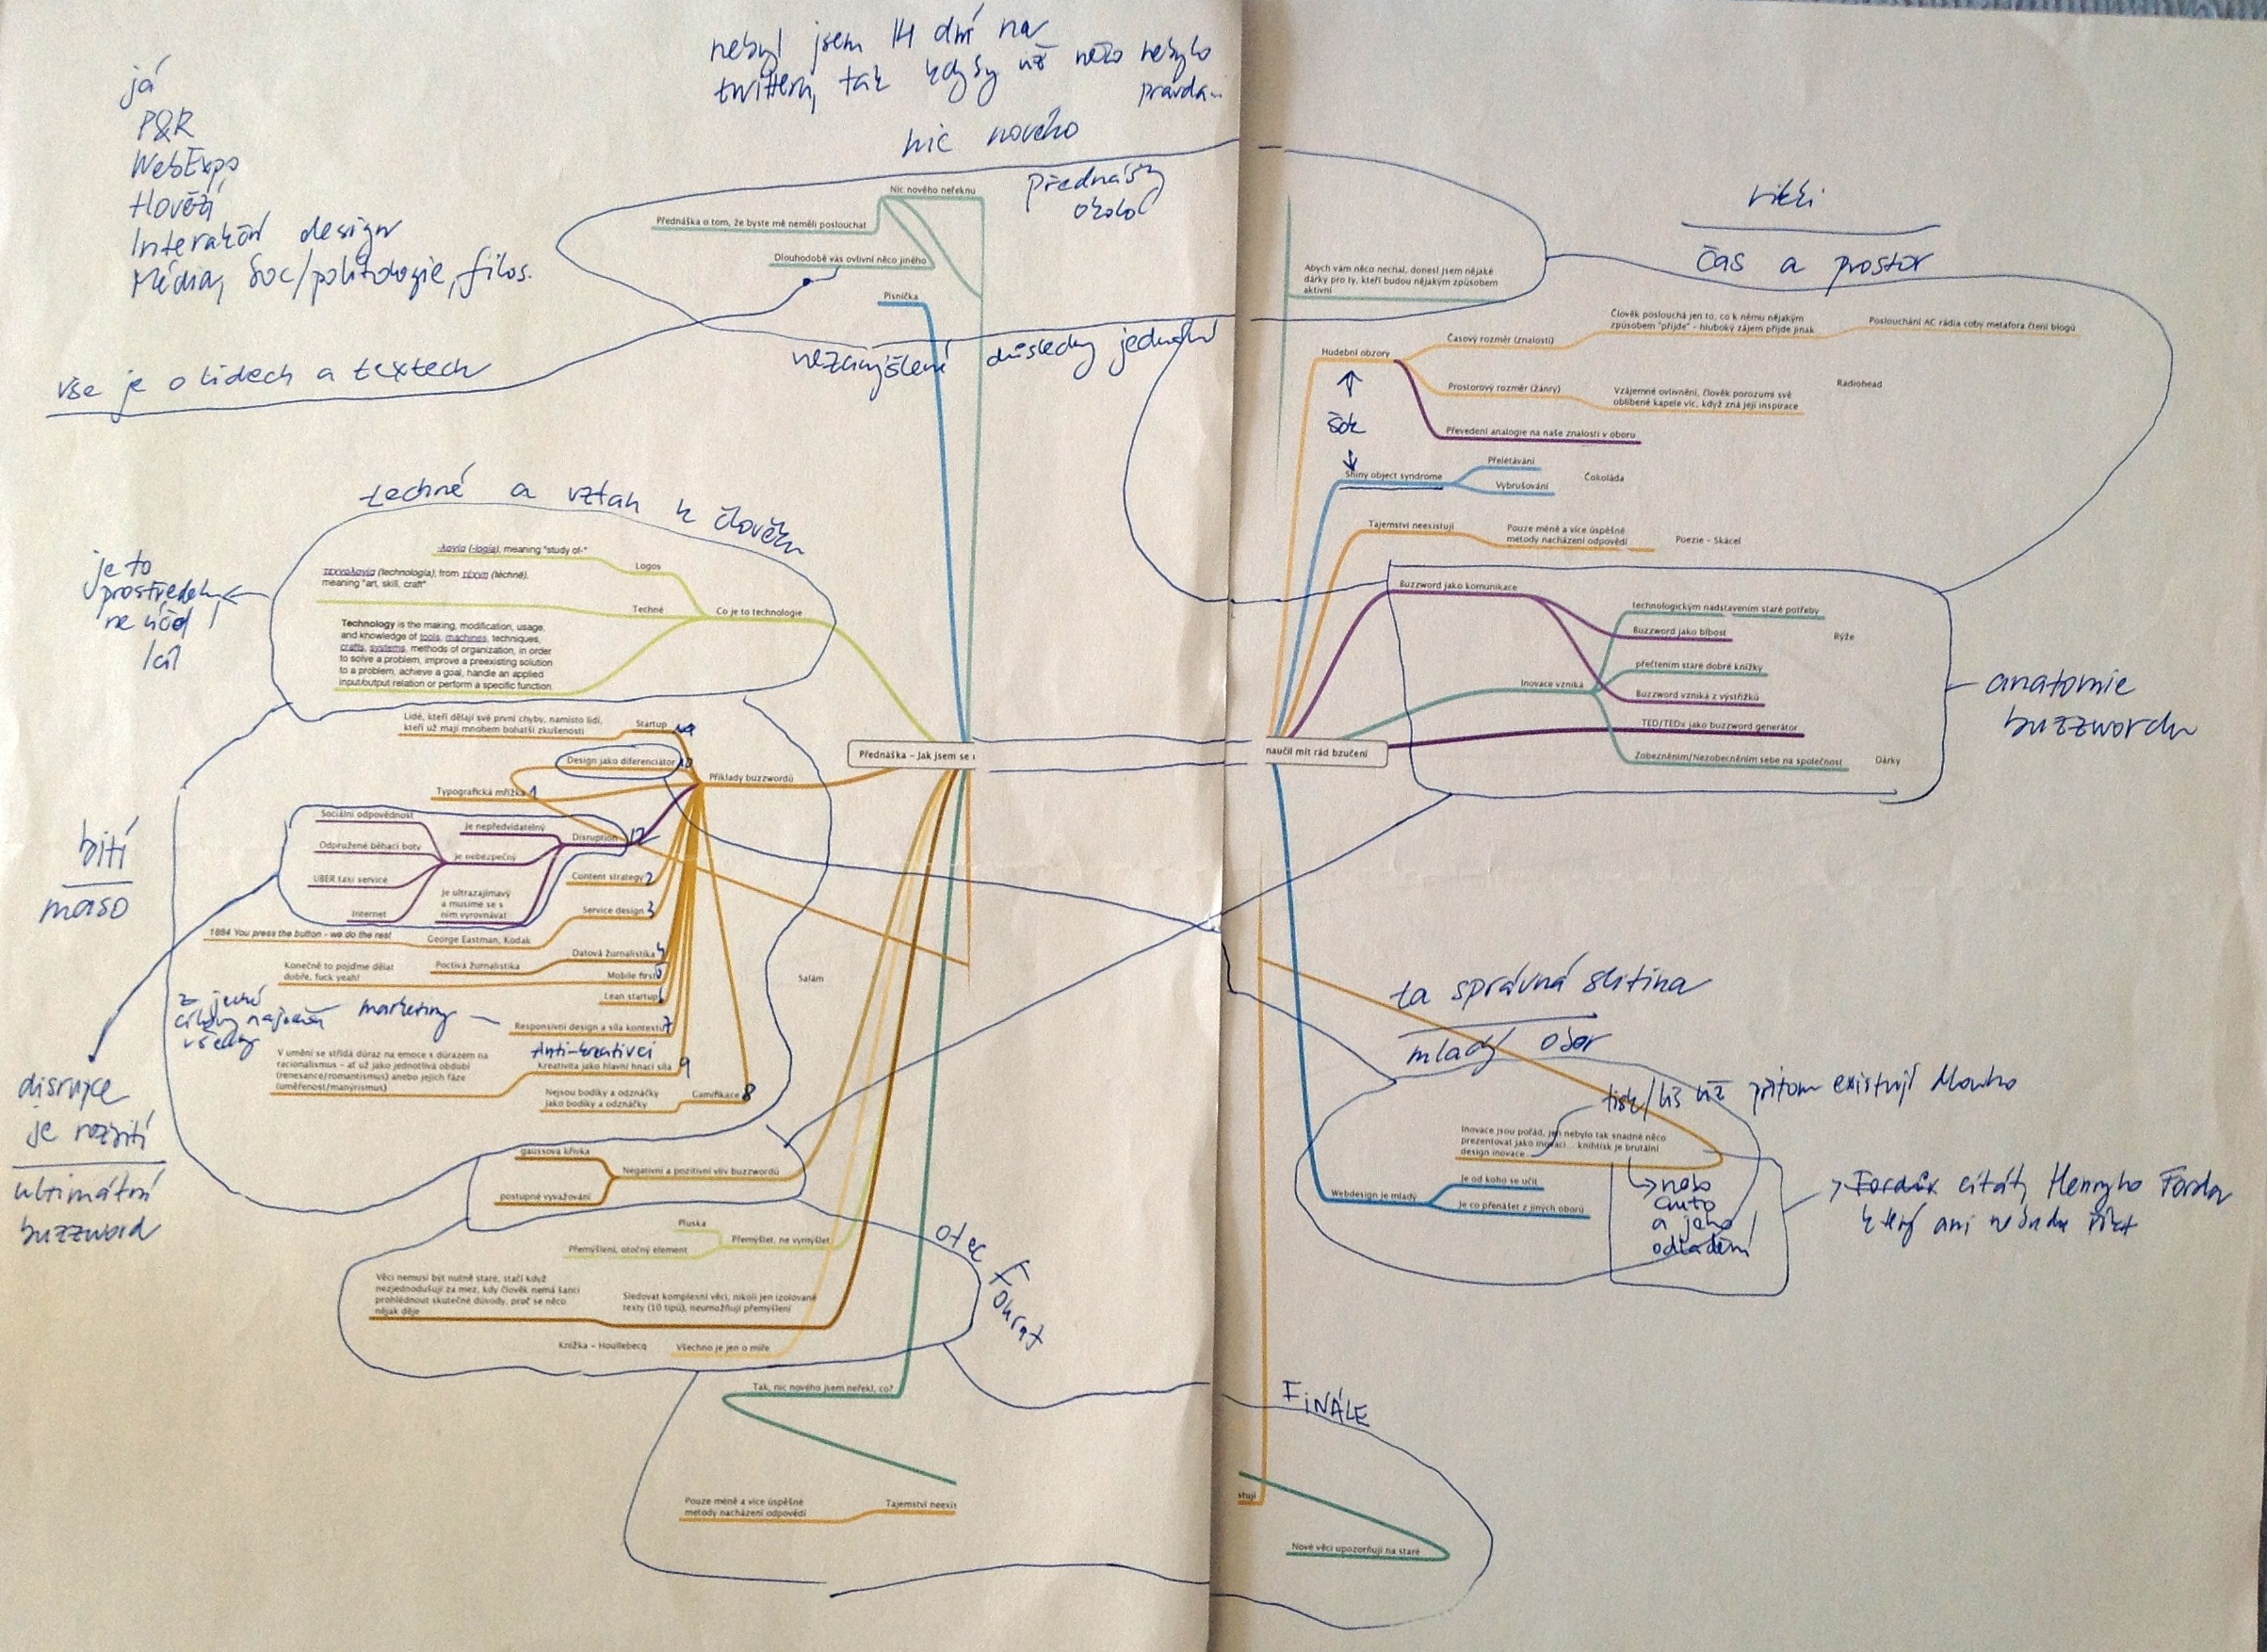 nebyl jsem 14 dní na
twitteru, tak kdyby už něco nebylo
pravda...
nic nového
já
P&R
WebExpo
Hovězí
Interakční design
Média, soc/politologie, filos.
Přednášky
okolo
Nic nového neřeknu
Přednáška o tom, že byste mě neměli poslouchat
Dlouhodobě vás ovlivní něco jiného
Písnička
vše je o lidech a textech
nezamýšlené důsledky jednání
techné a vztah k člověku
je to
prostředek
ne účel
/cíl
-λογία (-logia), meaning "study of-"
Logos
τεχνολογία (technologia), from τέχνη (téchnē),
meaning "art, skill, craft"
Techné
Co je to technologie
Technology is the making, modification, usage,
and knowledge of tools, machines, techniques,
crafts, systems, methods of organization, in order
to solve a problem, improve a preexisting solution
to a problem, achieve a goal, handle an applied
input/output relation or perform a specific function.
Lidé, kteří dělají své první chyby, namísto lidí,
kteří už mají mnohem bohatší zkušenosti
Startup
Design jako diferenciátor 10
Příklady buzzwordů
Typografická mřížka 1
Přednáška – Jak jsem se
naučil mít rád bzučení
Sociální odpovědnost
Odpružené běhací boty
UBER taxi service
Internet
je nepředvídatelný
je nebezpečný
je ultrazajímavý
a musíme se s
ním vyrovnávat
Disruption 12
Content strategy 2
Service design 3
1884 You press the button - we do the rest
George Eastman, Kodak
Datová žurnalistika 4
Poctivá žurnalistika
Konečně to pojďme dělat
dobře, fuck yeah!
Mobile first 5
Lean startup 6
Salám
marketing
Responsivní design a síla kontextu 7
V umění se střídá důraz na emoce s důrazem na
racionalismus – ať už jako jednotlivá období
(renesance/romantismus) anebo jejich fáze
(uměřenost/manýrismus)
Anti-kreativci
Kreativita jako hlavní hnací síla 9
Nejsou bodíky a odznáčky
jako bodíky a odznáčky
Gamifikace 8
bití
maso
disrupce
je rozbití
ultimátní
buzzword
gaussova křivka
postupné vyvažování
Negativní a pozitivní vliv buzzwordů
Pluska
Přemýšlení, otočný element
Přemýšlet, ne vymýšlet
otec Fourat
Věci nemusí být nutně staré, stačí když
nezjednodušují za mez, kdy člověk nemá šanci
prohlédnout skutečné důvody, proč se něco
nějak děje
Sledovat komplexní věci, nikoli jen izolované
texty (10 tipů), neumožňují přemýšlení
Knížka – Houllebecq
Všechno je jen o míře
Tak, nic nového jsem neřekl, co?
Pouze méně a více úspěšné
metody nacházení odpovědí
Tajemství neexis
stují
čas a prostor
Abych vám něco nechal, donesl jsem nějaké
dárky pro ty, kteří budou nějakým způsobem
aktivní
Hudební obzory
Časový rozměr (znalosti)
Člověk poslouchá jen to, co k němu nějakým
způsobem "přijde" - hluboký zájem přijde jinak
Poslouchání AC rádia coby metafora čtení blogů
Prostorový rozměr (žánry)
Vzájemné ovlivnění, člověk porozumí své
oblíbené kapele víc, když zná její inspirace
Radiohead
Převedení analogie na naše znalosti v oboru
šok
Shiny object syndrome
Přelétávání
Vybrušování
Čokoláda
Tajemství neexistují
Pouze méně a více úspěšné
metody nacházení odpovědí
Poezie – Skácel
Buzzword jako komunikace
technologickým nadstavením staré potřeby
Buzzword jako blbost
Rýže
přečtením staré dobré knížky
Inovace vzniká
Buzzword vzniká z výstřižků
TED/TEDx jako buzzword generátor
Zobezněním/Nezobecněním sebe na společnost
Dárky
anatomie
buzzwordu
ta správná slitina
mladý obor
tisk/liš už přitom existují dlouho
Inovace jsou pořád, jen nebylo tak snadné něco
prezentovat jako inovaci... knihtisk je brutální
design inovace
Webdesign je mladý
Je od koho se učit
Je co přenášet z jiných oborů
nebo
auto
a jeho
odladění
citát Henryho Forda
který ani nebudu říkat
FINÁLE
Nové věci upozorňují na staré